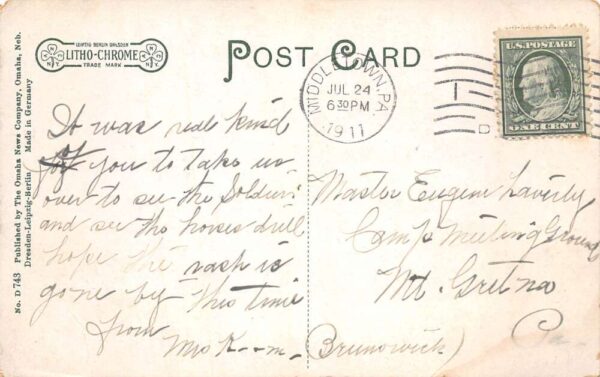 LEIPZIG BERLIN DRESDEN
LITHO-CHROME
TRADE MARK
N.Y.
N.Y.
POST CARD
MIDDLETOWN, PA.
JUL 24
6 30 PM
1911
U.S. POSTAGE
ONE CENT
No. D 743 Published by The Omaha News Company, Omaha, Neb.
Dresden-Leipzig-Berlin Made in Germany
It was real kind
of you to take us
over to see the Soldiers
and see the horses drill
hope the rash is
gone by this time
from
Mrs
(Brunswick)
Master Eugene Laverty
Camp Meeting Ground
Mt. Gretna
Pa